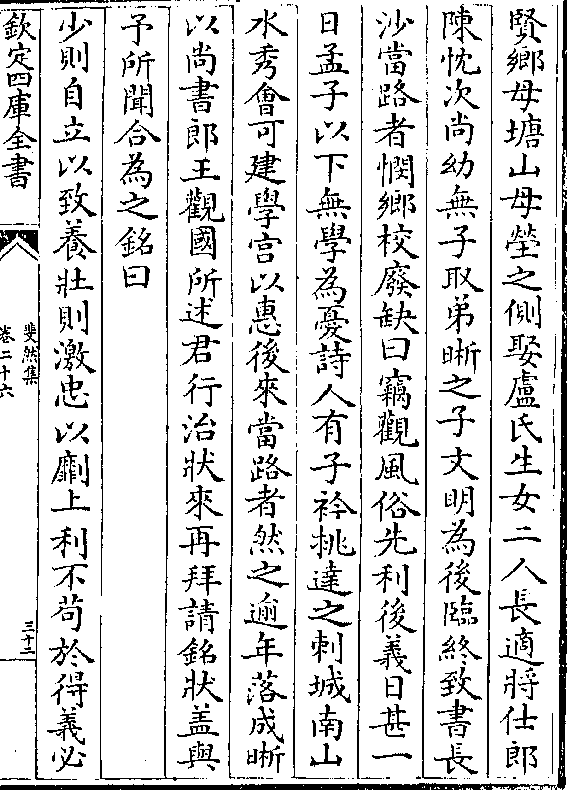 賢鄉母塘山母塋之側娶盧氏生女二人長適將仕郎
陳忱次尚幼無子取弟晰之子文明為後臨終致書長
沙當路者憫鄉校廢缺曰竊觀風俗先利後義日甚一
日孟子以下無學為憂詩人有子衿挑達之刺城南山
水秀會可建學宫以惠後來當路者然之逾年落成晰
以尚書郎王觀國所述君行治狀來再拜請銘狀盖與
予所聞合為之銘曰
少則自立以致養壯則激忠以劘上利不苟於得義必
欽定四庫全書
斐然集
卷二十六
三十二